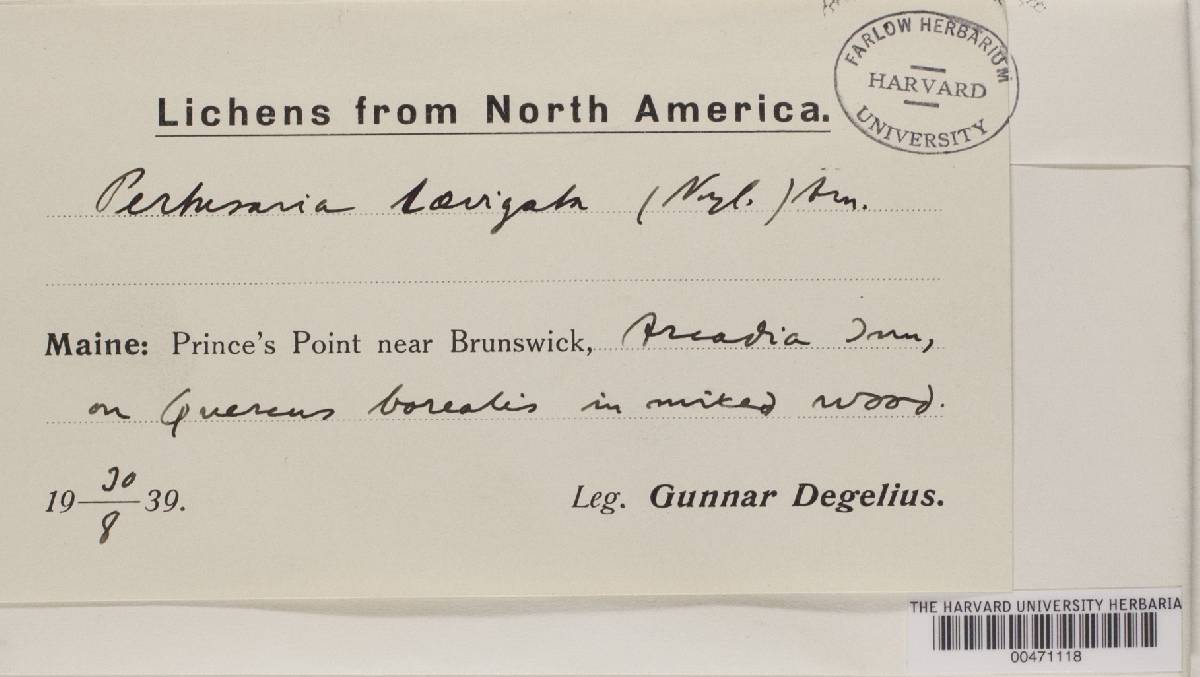 FARLOW HERBARIUM
HARVARD
UNIVERSITY
Lichens from North America.
Pertusaria lævigata (Nyl.) Arn.
Maine: Prince's Point near Brunswick, Arcadia Inn,
on Quercus borealis in mixed wood.
19 30/8 39.
Leg. Gunnar Degelius.
THE HARVARD UNIVERSITY HERBARIA
00471118